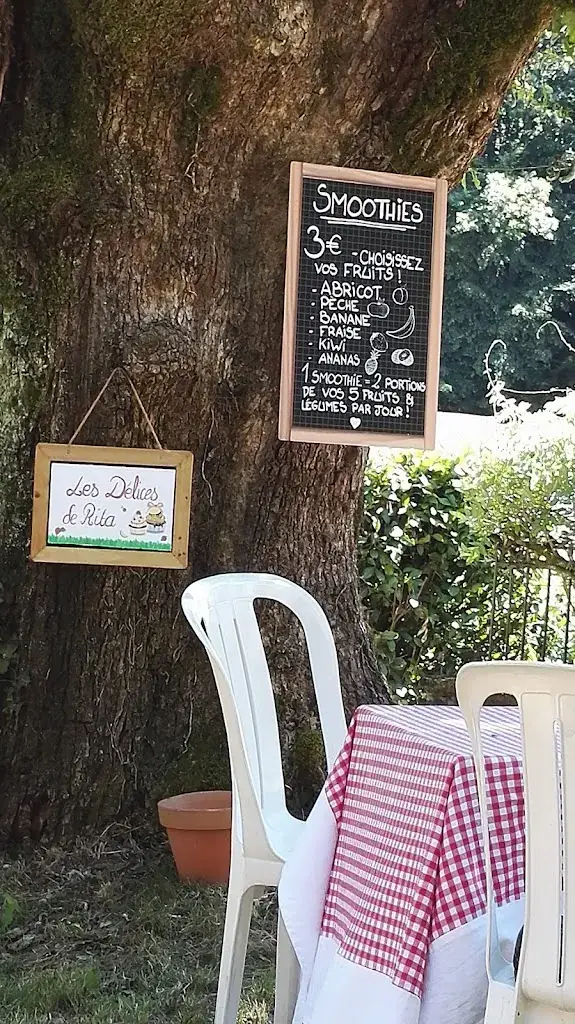 SMOOTHIES
3€ - CHOISISSEZ
VOS FRUITS !
- ABRICOT
- PECHE
- BANANE
- FRAISE
- KIWI
- ANANAS
1 SMOOTHIE = 2 PORTIONS
DE VOS 5 FRUITS &
LÉGUMES PAR JOUR !
Les Délices
de Rita